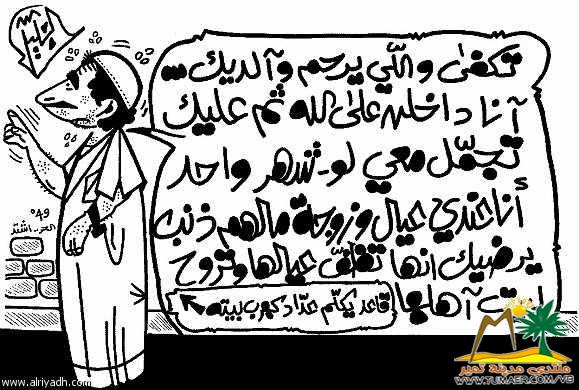 تكفىٰ واللّي يرحم وآلديك ...
أنا داخلٍ علىٰ الله ثم عليك
تجمّل معي لو شهر واحد
أنا عندي عيال وزوجة مالهم ذنب
يرضيك انها تقلفّ عيالها وتروح
بيت آهلها
قاعد يكلّم عدّاد كهرب بيته
٠٤٩
الحر.. اشتد
www.alriyadh.com
منتدى مدينة تمير
WWW.TUMAER.COM/VB